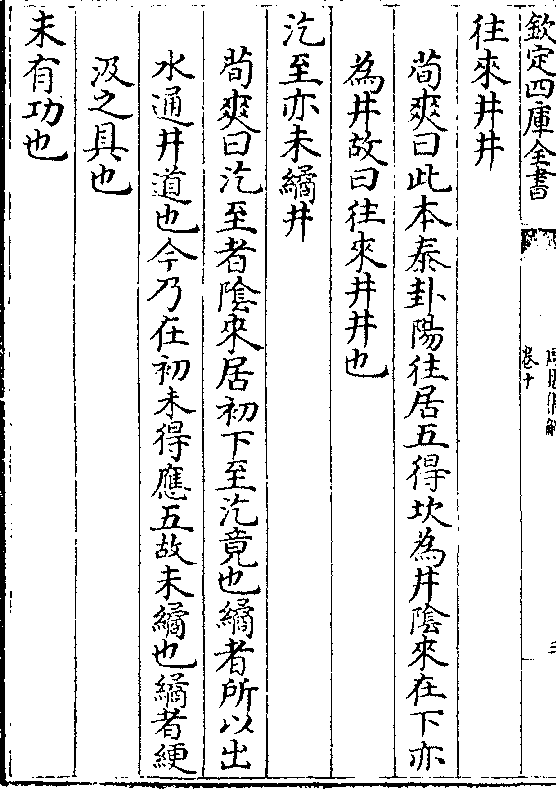 欽定四庫全書
卷十
往來井井
荀爽曰此本泰卦陽往居五得坎為井陰來在下亦
為井故曰往來井井也
汔至亦未繘井
荀爽曰汔至者陰來居初下至汔竟也繘者所以出
水通井道也今乃在初未得應五故未繘也繘者綆
汲之具也
未有功也